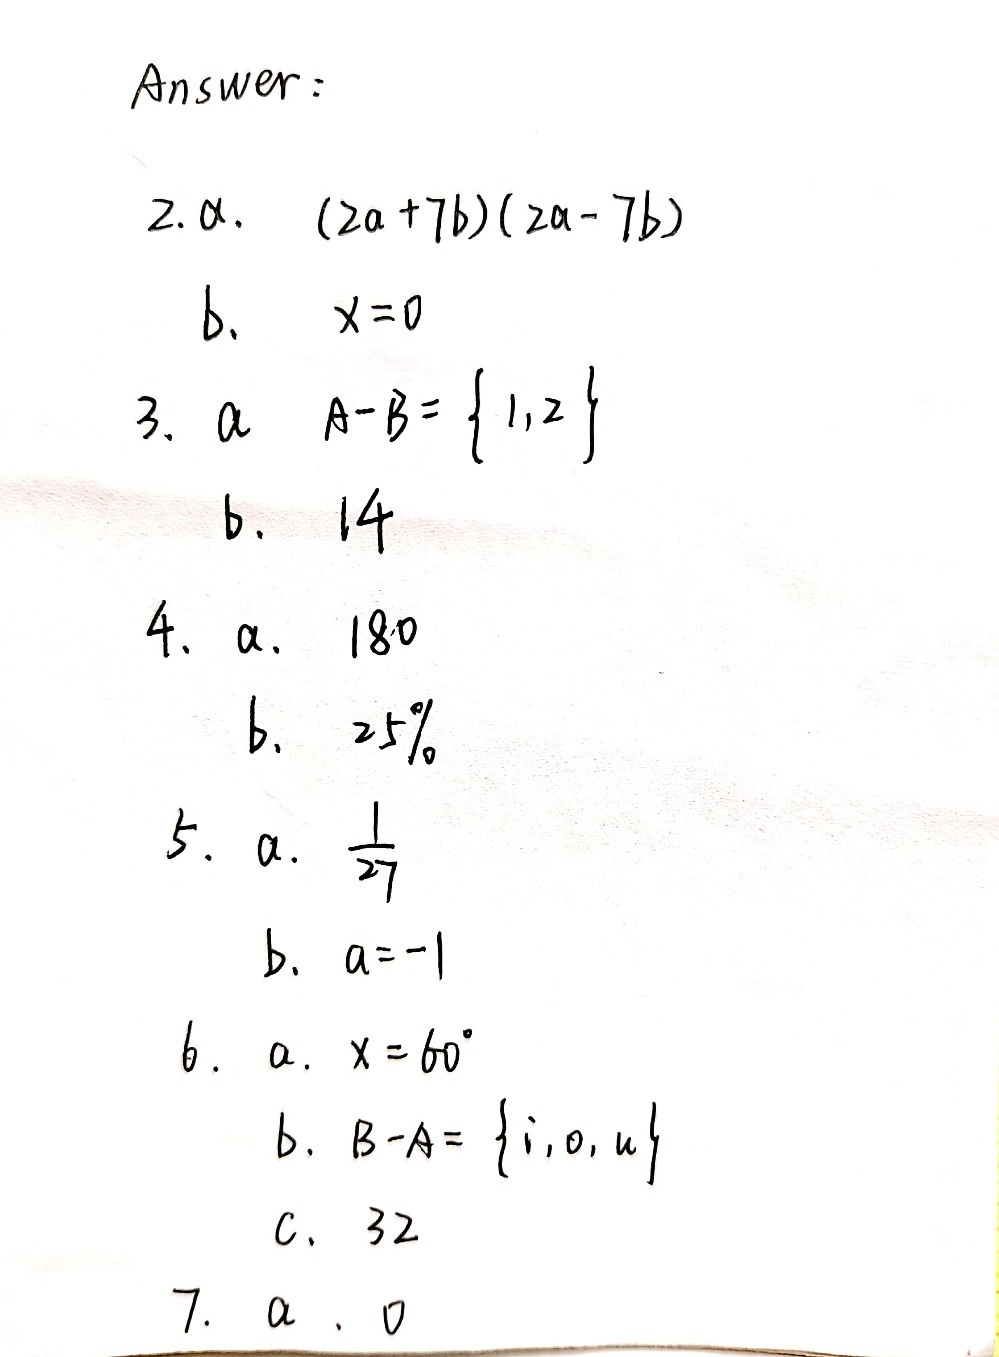 Answer:
2. a. (2a+7b)(2a-7b)
b. x=0
3. a A-B={1,2}
b. 14
4. a. 180
b. 25%
5. a. 1/27
b. a=-1
6. a. x=60°
b. B-A={i,o,u}
c. 32
7. a. 0